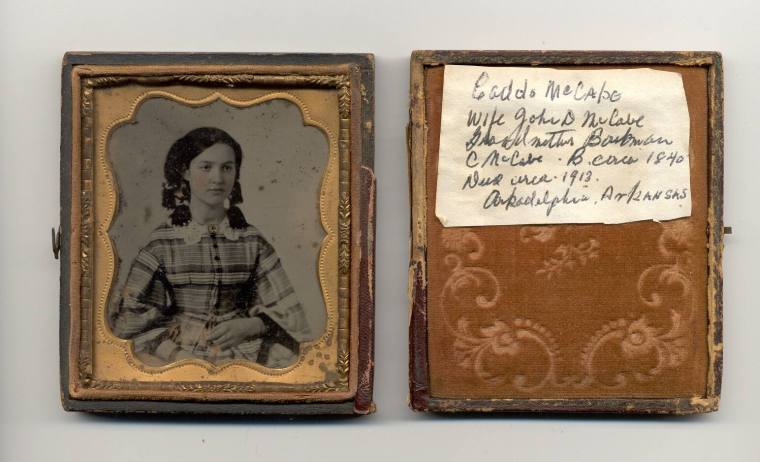 Caddo McCabe
Wife John D McCabe
Grandmother Boekman
C McCabe - B. circa 1840
Died circa 1913.
Arkadelphia, Arkansas